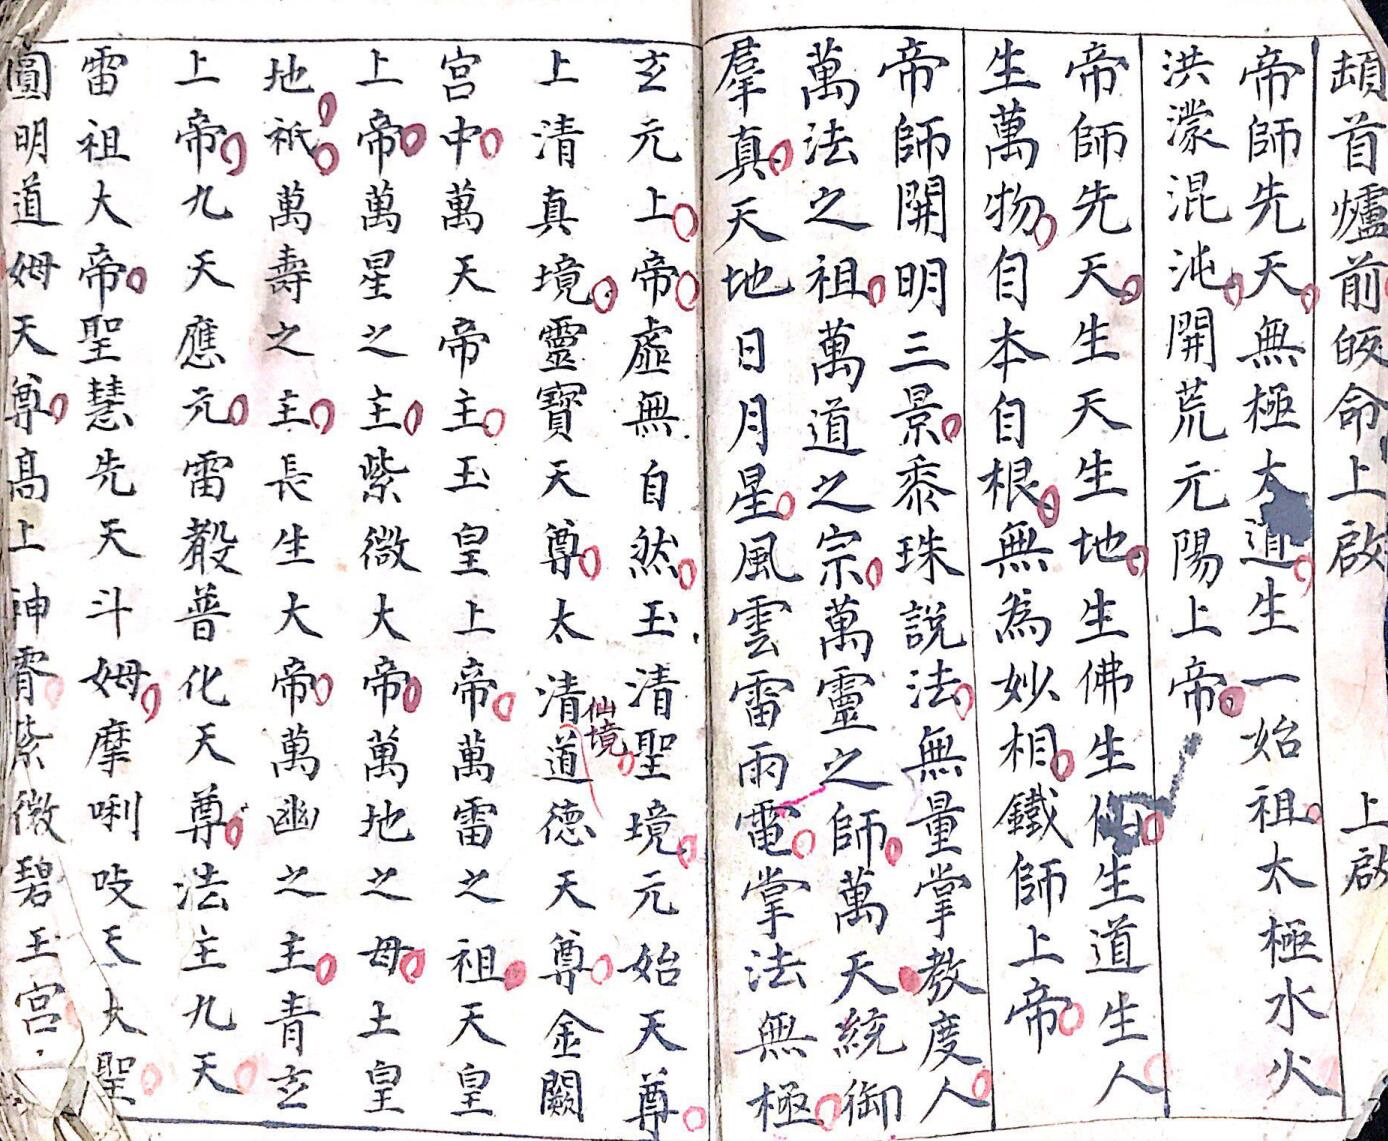 頡首爐前皈命上啟 上啟
帝師先天無極大道生一始祖太極水火
洪濛混沌開荒元陽上帝
帝師先天生天生地生佛生仙生道生人
生萬物自本自根無為妙相鐵師上帝
帝師開明三景黍珠說法無量掌教度人
萬法之祖萬道之宗萬靈之師萬天統御
羣真天地日月星風雲雷雨電掌法無極
玄元上帝虛無自然玉清聖境元始天尊
上清真境靈寶天尊太清道德天尊金闕
仙境
宮中萬天帝主玉皇上帝萬雷之祖天皇
上帝萬星之主紫微大帝萬地之母土皇
地祇萬壽之主長生大帝萬幽之主青玄
上帝九天應元雷聲普化天尊法主九天
雷祖大帝聖慧先天斗姆摩唎吱天大聖
圓明道姆天尊高上神霄紫微碧玉宮